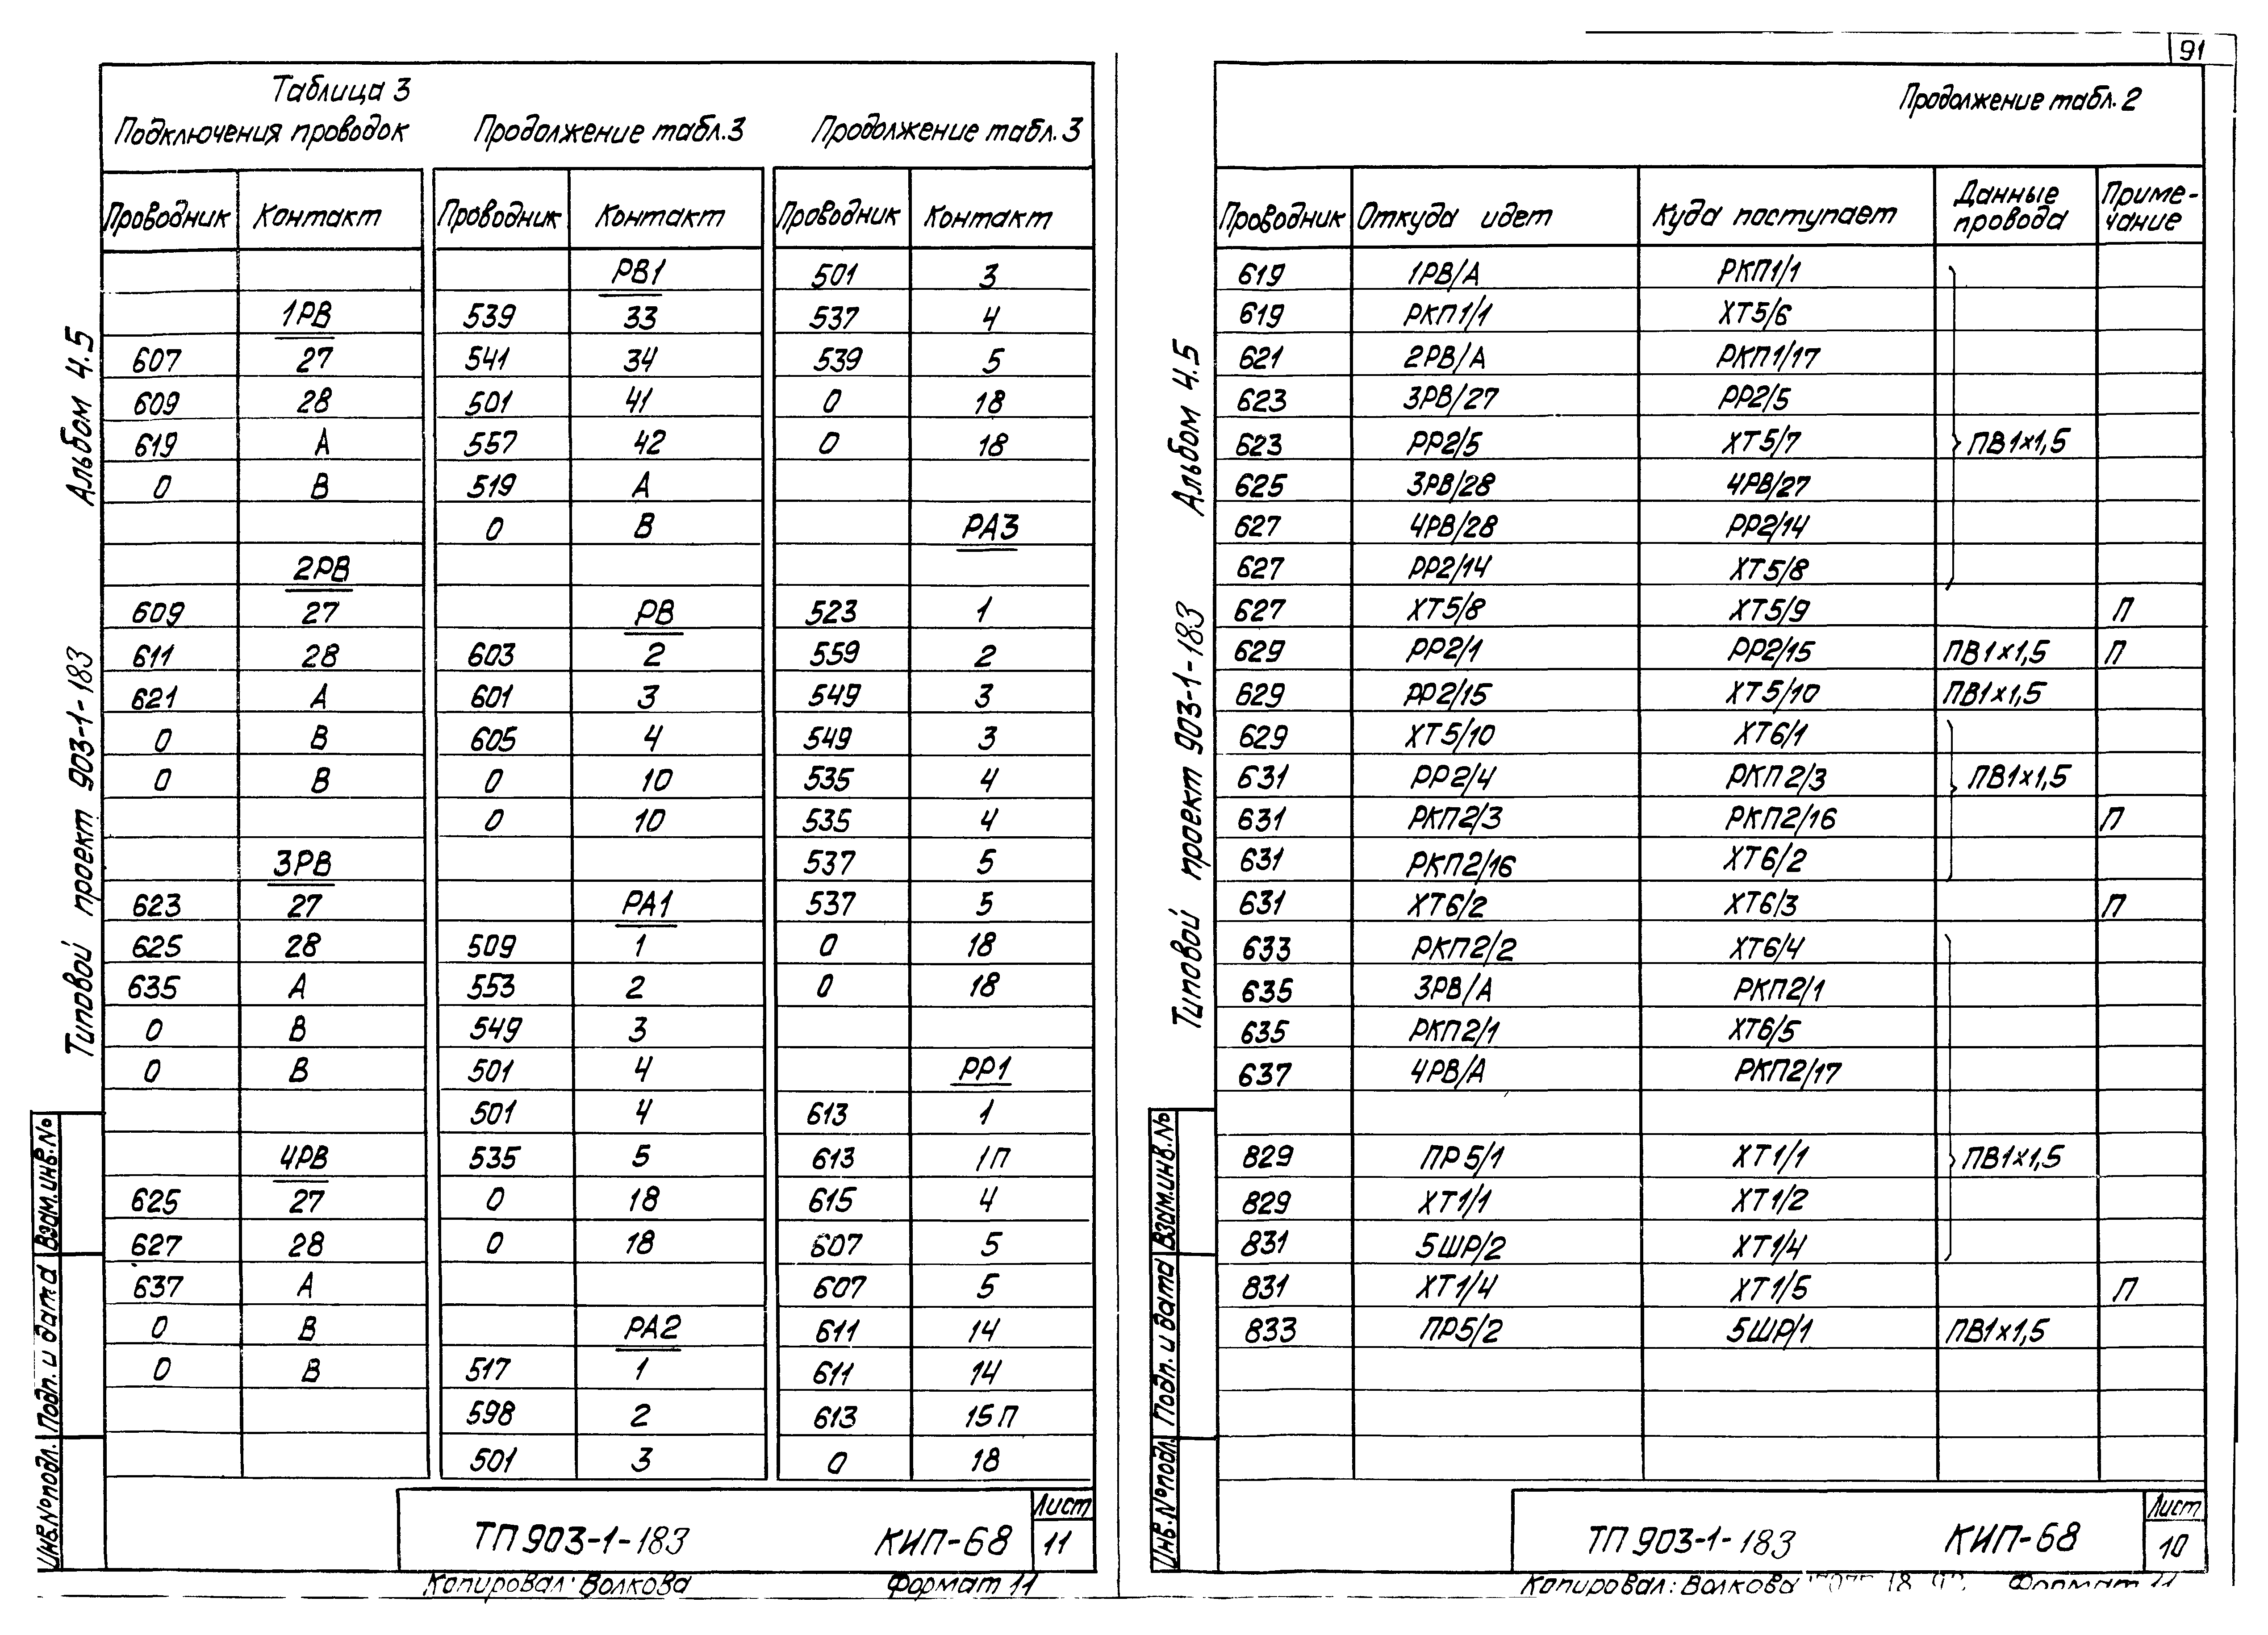 91
Таблица 3
Подключения проводок
Продолжение табл.3
Продолжение табл.3
Проводник Контакт Проводник Контакт Проводник Контакт
РВ1 501 3
1РВ 539 33 537 4
607 27 541 34 539 5
609 28 501 41 0 18
619 А 557 42 0 18
0 В 519 А
0 В РА3
2РВ
609 27 РВ 523 1
611 28 603 2 559 2
621 А 601 3 549 3
0 В 605 4 549 3
0 В 0 10 535 4
0 10 535 4
3РВ 537 5
623 27 РА1 537 5
625 28 509 1 0 18
635 А 553 2 0 18
0 В 549 3
0 В 501 4 РР1
501 4 613 1
4РВ 535 5 613 1П
625 27 0 18 615 4
627 28 0 18 607 5
637 А 607 5
0 В РА2 611 14
0 В 517 1 611 14
598 2 613 15П
501 3 0 18
Альбом 4.5
Типовой проект 903-1-183
Взам.инв.№
Подп. и дата
Инв.№подл.
ТП 903-1-183 КИП-68
Лист
11
Копировал: Волкова Формат 11
Продолжение табл. 2
Проводник Откуда идет Куда поступает Данные провода Приме-чание
619 1РВ/А РКП1/1
619 РКП1/1 ХТ5/6
621 2РВ/А РКП1/17
623 3РВ/27 РР2/5
623 РР2/5 ХТ5/7 ПВ1×1,5
625 3РВ/28 4РВ/27
627 4РВ/28 РР2/14
627 РР2/14 ХТ5/8
627 ХТ5/8 ХТ5/9 П
629 РР2/1 РР2/15 ПВ1×1,5 П
629 РР2/15 ХТ5/10 ПВ1×1,5
629 ХТ5/10 ХТ6/1
631 РР2/4 РКП2/3 ПВ1×1,5
631 РКП2/3 РКП2/16 П
631 РКП2/16 ХТ6/2
631 ХТ6/2 ХТ6/3 П
633 РКП2/2 ХТ6/4
635 3РВ/А РКП2/1
635 РКП2/1 ХТ6/5
637 4РВ/А РКП2/17
829 ПР5/1 ХТ1/1 ПВ1×1,5
829 ХТ1/1 ХТ1/2
831 5ШР/2 ХТ1/4
831 ХТ1/4 ХТ1/5 П
833 ПР5/2 5ШР/1 ПВ1×1,5
Альбом 4.5
Типовой проект 903-1-183
Взам.инв.№
Подп. и дата
Инв.№подл.
ТП 903-1-183 КИП-68
Лист
10
Копировал: Волкова Формат 11